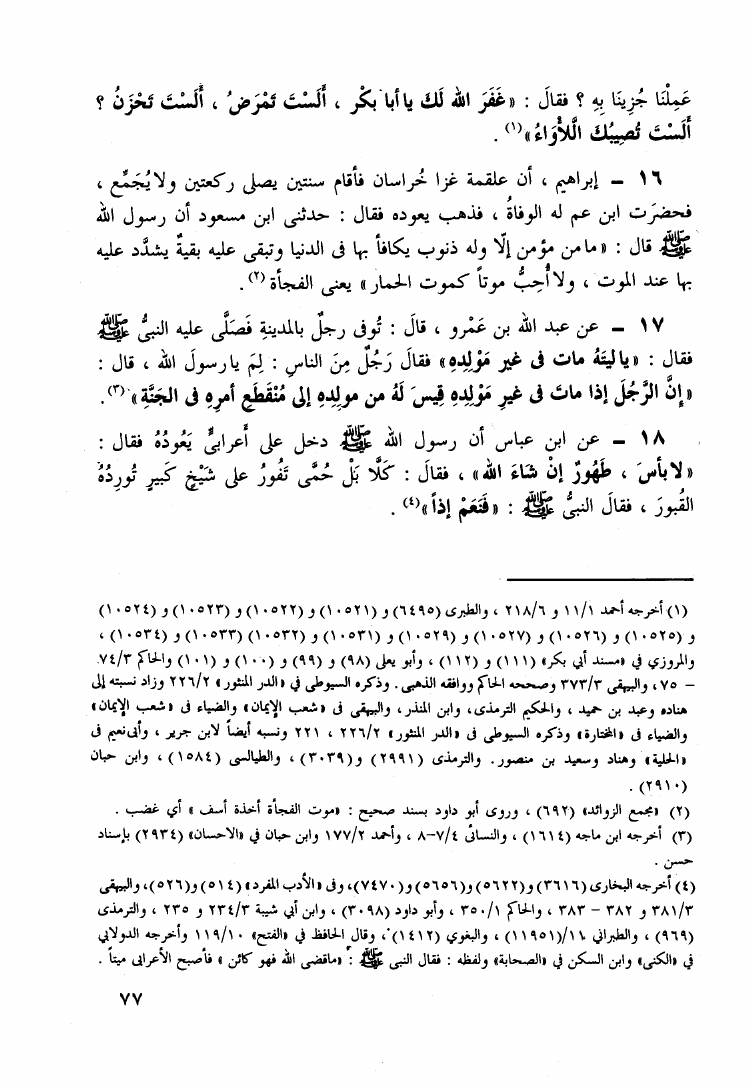 عَمِلْنَا جُزِينَا بِهِ ؟ فقالَ : «غَفَرَ الله لَكَ يا أبا بكْر ، أَلَسْتَ تَمْرَضُ ، أَلَسْتَ تَحْزَنُ ؟
أَلَسْتَ تُصِيبُكَ الَّلأْوَاءُ»(١) .
١٦ – إبراهيم ، أن علقمة غزا خُراسان فأقام سنتين يصلى ركعتين ولا يُجَمِّع ،
فحضرَت ابن عم له الوفاةُ ، فذهب يعوده فقال : حدثنى ابن مسعود أن رسول الله
ﷺ قال : «ما من مؤمن إلّا وله ذنوب يكافأ بها فى الدنيا وتبقى عليه بقيةٌ يشدَّد عليه
بها عند الموت ، ولا أُحِبُّ موتاً كموت الحمار» يعنى الفجأة(٢) .
١٧ – عن عبد الله بن عَمْرو ، قالَ : تُوفى رجلٌ بالمدينةِ فَصَلَّى عليه النبىُّ ﷺ
فقال : «يا ليتَهُ مات فى غير مَوْلِدِهِ» فقالَ رَجُلٌ مِنَ الناسِ : لِمَ يا رسولَ الله ، قال :
«إنَّ الرَّجُلَ إذا ماتَ فى غيرِ مَوْلِدِهِ قِيسَ لَهُ من مولِدِهِ إلى مُنْقَطَعِ أمرِهِ فى الجَنَّةِ»(٣).
١٨ – عن ابن عباس أن رسول الله ﷺ دخل على أَعرابىٍّ يَعُودُهُ فقال :
«لا بأسَ ، طَهُورٌ إنْ شَاءَ الله» ، فقالَ : كَلَّا بَلْ حُمَّى تَفُورُ على شَيْخٍ كَبيرٍ تُورِدُهُ
القُبورَ ، فقالَ النبىُّ ﷺ : «فَنَعَمْ إذاً»(٤) .
(١) أخرجه أحمد ١١/١ و ٢١٨/٦ ، والطبرى (٦٤٩٥) و (١٠٥٢١) و (١٠٥٢٢) و (١٠٥٢٣) و (١٠٥٢٤)
و (١٠٥٢٥) و (١٠٥٢٦) و (١٠٥٢٧) و (١٠٥٢٩) و (١٠٥٣١) و (١٠٥٣٢) (١٠٥٣٣) و (١٠٥٣٤) ،
والمروزي في «مسند أبي بكر» (١١١) و (١١٢) ، وأبو يعلى (٩٨) و (٩٩) و (١٠٠) و (١٠١) والحاكم ٧٤/٣
– ٧٥، والبيهقى ٣٧٣/٣ وصححه الحاكم ووافقه الذهبي. وذكره السيوطى في «الدر المنثور» ٢٢٦/٢ وزاد نسبته إلى
هناده وعبد بن حميد ، والحكيم الترمذى، وابن المنذر، والبيهقى فى «شعب الإيمان» والضياء فى «شعب الإيمان»
والضياء فى «المختارة» وذكره السيوطى فى «الدر المنثور» ٢٢٦/٢ ، ٢٢١ ونسبه أيضاً لابن جرير ، وأبى نعيم فى
«الحلية» وهناد وسعيد بن منصور. والترمذي (٢٩٩١) و (٣٠٣٩) ، والطيالسي (١٥٨٤) ، وابن حبان
(٢٩١٠) .
(٢) «مجمع الزوائد» (٦٩٢) ، وروى أبو داود بسند صحيح : «موت الفجأة أخذة أسف» أي غضب .
(٣) أخرجه ابن ماجه (١٦١٤) ، والنسائى ٧/٤–٨ ، وأحمد ١٧٧/٢ وابن حبان في «الاحسان» (٢٩٣٤) بإسناد
حسن .
(٤) أخرجه البخارى (٣٦١٦) و(٥٦٢٢) و(٥٦٥٦) و(٧٤٧٠)، وفى «الأدب المفرد» (٥١٤) و(٥٢٦)، والبيهقى
٣٨١/٣ و ٣٨٢ – ٣٨٣ ، والحاكم ٣٥٠/١ ، وأبو داود (٣٠٩٨) ، وابن أبي شيبة ٢٣٤/٣ و ٢٣٥ ، والترمذى
(٩٦٩) ، والطبراني ١١/(١١٩٥١) ، والبغوي (١٤١٢)، وقال الحافظ في «الفتح» ١١٩/١٠ وأخرجه الدولابي
في «الكنى» وابن السكن في «الصحابة» ولفظه : فقال النبى ﷺ : «ما قضى الله فهو كائن» فأصبح الأعرابى ميتاً .
٧٧